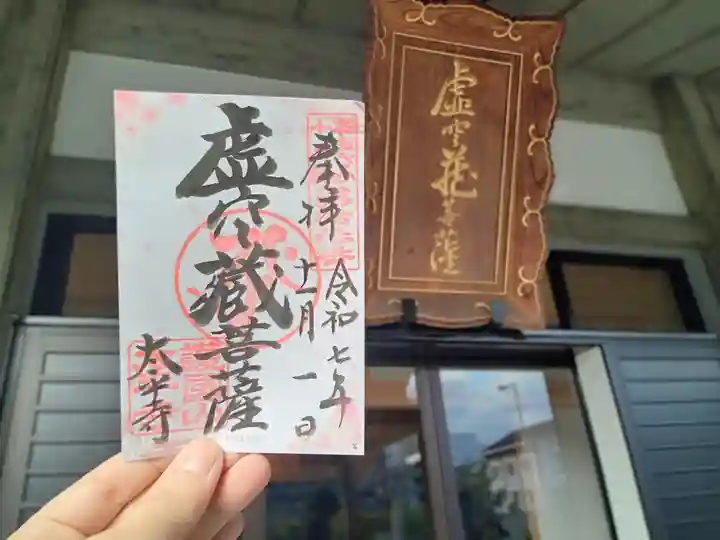 奉拝
令和七年
十一月一日
虚空藏菩薩
太平寺
虚空藏菩薩